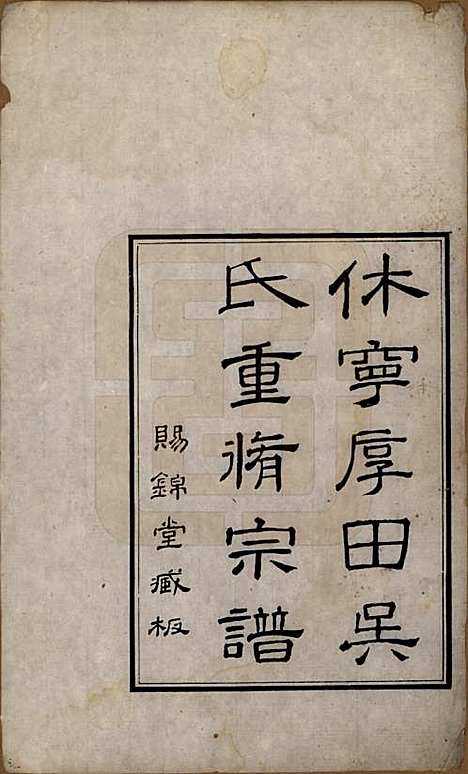 休寧厚田吴
氏重脩宗譜
賜錦堂藏板